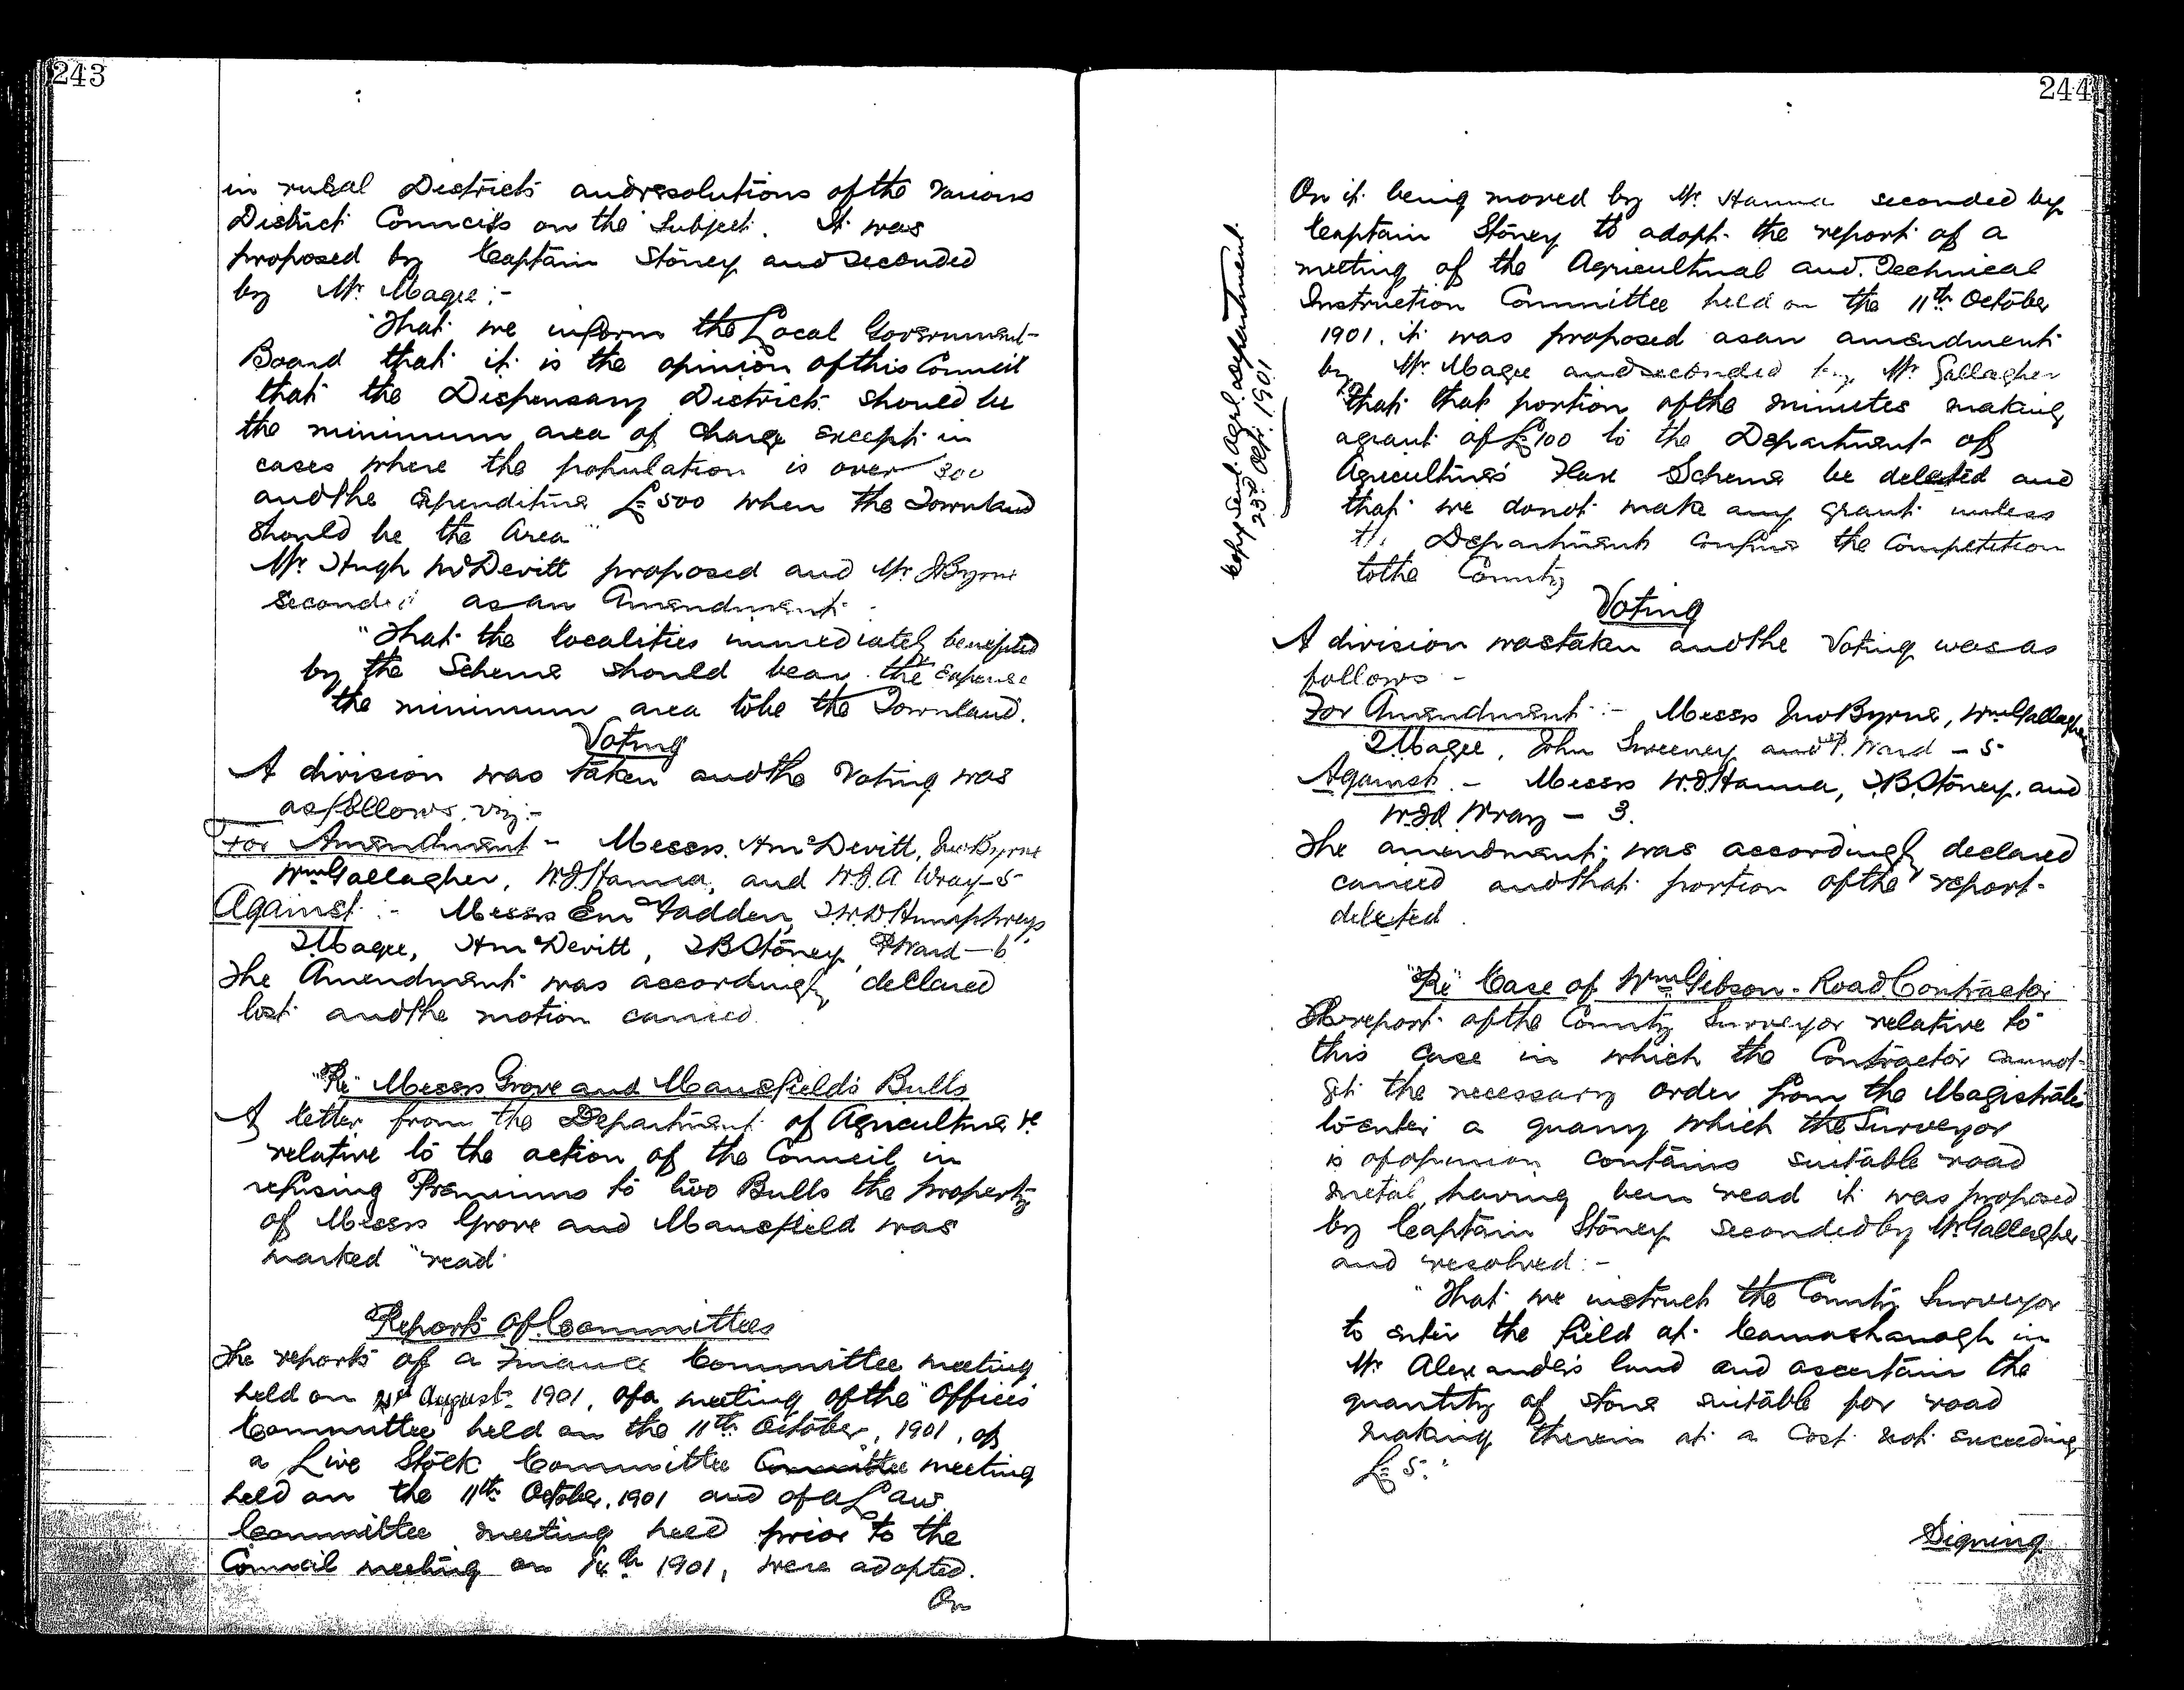 243
in rural Districts and resolutions of the various
District Councils on the Subject. It was
proposed by Captain Stoney and seconded
by Mr. Magee :-
"That we inform the Local Government
Board that it is the opinion of this Council
that the Dispensary Districts should be
the minimum area of Charge except in
cases where the population is over 300
and the expenditure £500 when the Townland
should be the Area"
Mr. Hugh McDevitt proposed and Mr J Byrne
seconded as an Amendment :
"That the localities immediately benefited
by the Scheme should bear the expense
the minimum area to be the Townland.
Voting
A division was taken and the Voting was
as follows viz :-
For Amendment - Messrs. H McDevitt, Jno Byrne
Wm Gallagher, W.J. Hanna, and W.J.A Wray - 5
Against :- Messrs E McFadden, Humphreys
J Magee, H McDevitt, J B Stoney, P Ward - 6
The Amendment was accordingly declared
lost and the motion carried.
"Re" Messrs Grove and Mansfield's Bulls
A letter from the Department of Agriculture &c
relative to the action of the Council in
refusing Premiums to two Bulls the property
of Messrs Grove and Mansfield was
marked "read"
Reports of Committees
The reports of a Finance Committee meeting
held on 21st August 1901, of a meeting of the Offices
Committee held on the 11th October, 1901, of
a Live Stock Committee Committee meeting
held on the 11th October, 1901 and of a Law
Committee meeting held prior to the
Council meeting on 14th 1901, were adopted.
On
244
Copy sent Agrl. Department
23rd Oct. 1901
On it being moved by Mr. Hanna seconded by
Captain Stoney to adopt the report of a
meeting of the Agricultural and Technical
Instruction Committee held on the 11th October
1901, it was proposed as an amendment
by Mr. Magee and seconded by Mr Gallagher
"That that portion of the minutes making
a grant of £100 to the Department of
Agriculture's Flax Scheme be deleted and
that we do not make any grant unless
the Department confine the Competition
to the County
Voting
A division was taken and the Voting was as
follows -
For Amendment :- Messrs Jno Byrne, Wm Gallagher
J Magee, John Sweeney and P. Ward - 5
Against - Messrs W.J. Hanna, J.B. Stoney, and
W.J.A Wray - 3.
The amendment was accordingly declared
carried and that portion of the report
deleted.
"Re" Case of Wm Gibson - Road Contractor
The report of the County Surveyor relative to
this Case in which the Contractor cannot
get the necessary order from the Magistrates
to enter a quarry which the Surveyor
is of opinion contains suitable road
metal, having been read it was proposed
by Captain Stoney seconded by Mr Gallagher
and resolved :-
"That we instruct the County Surveyor
to enter the field at Carnashanagh in
Mr Alexander's land and ascertain the
quantity of stone suitable for road
making therein at a Cost not exceeding
£5."
Signing